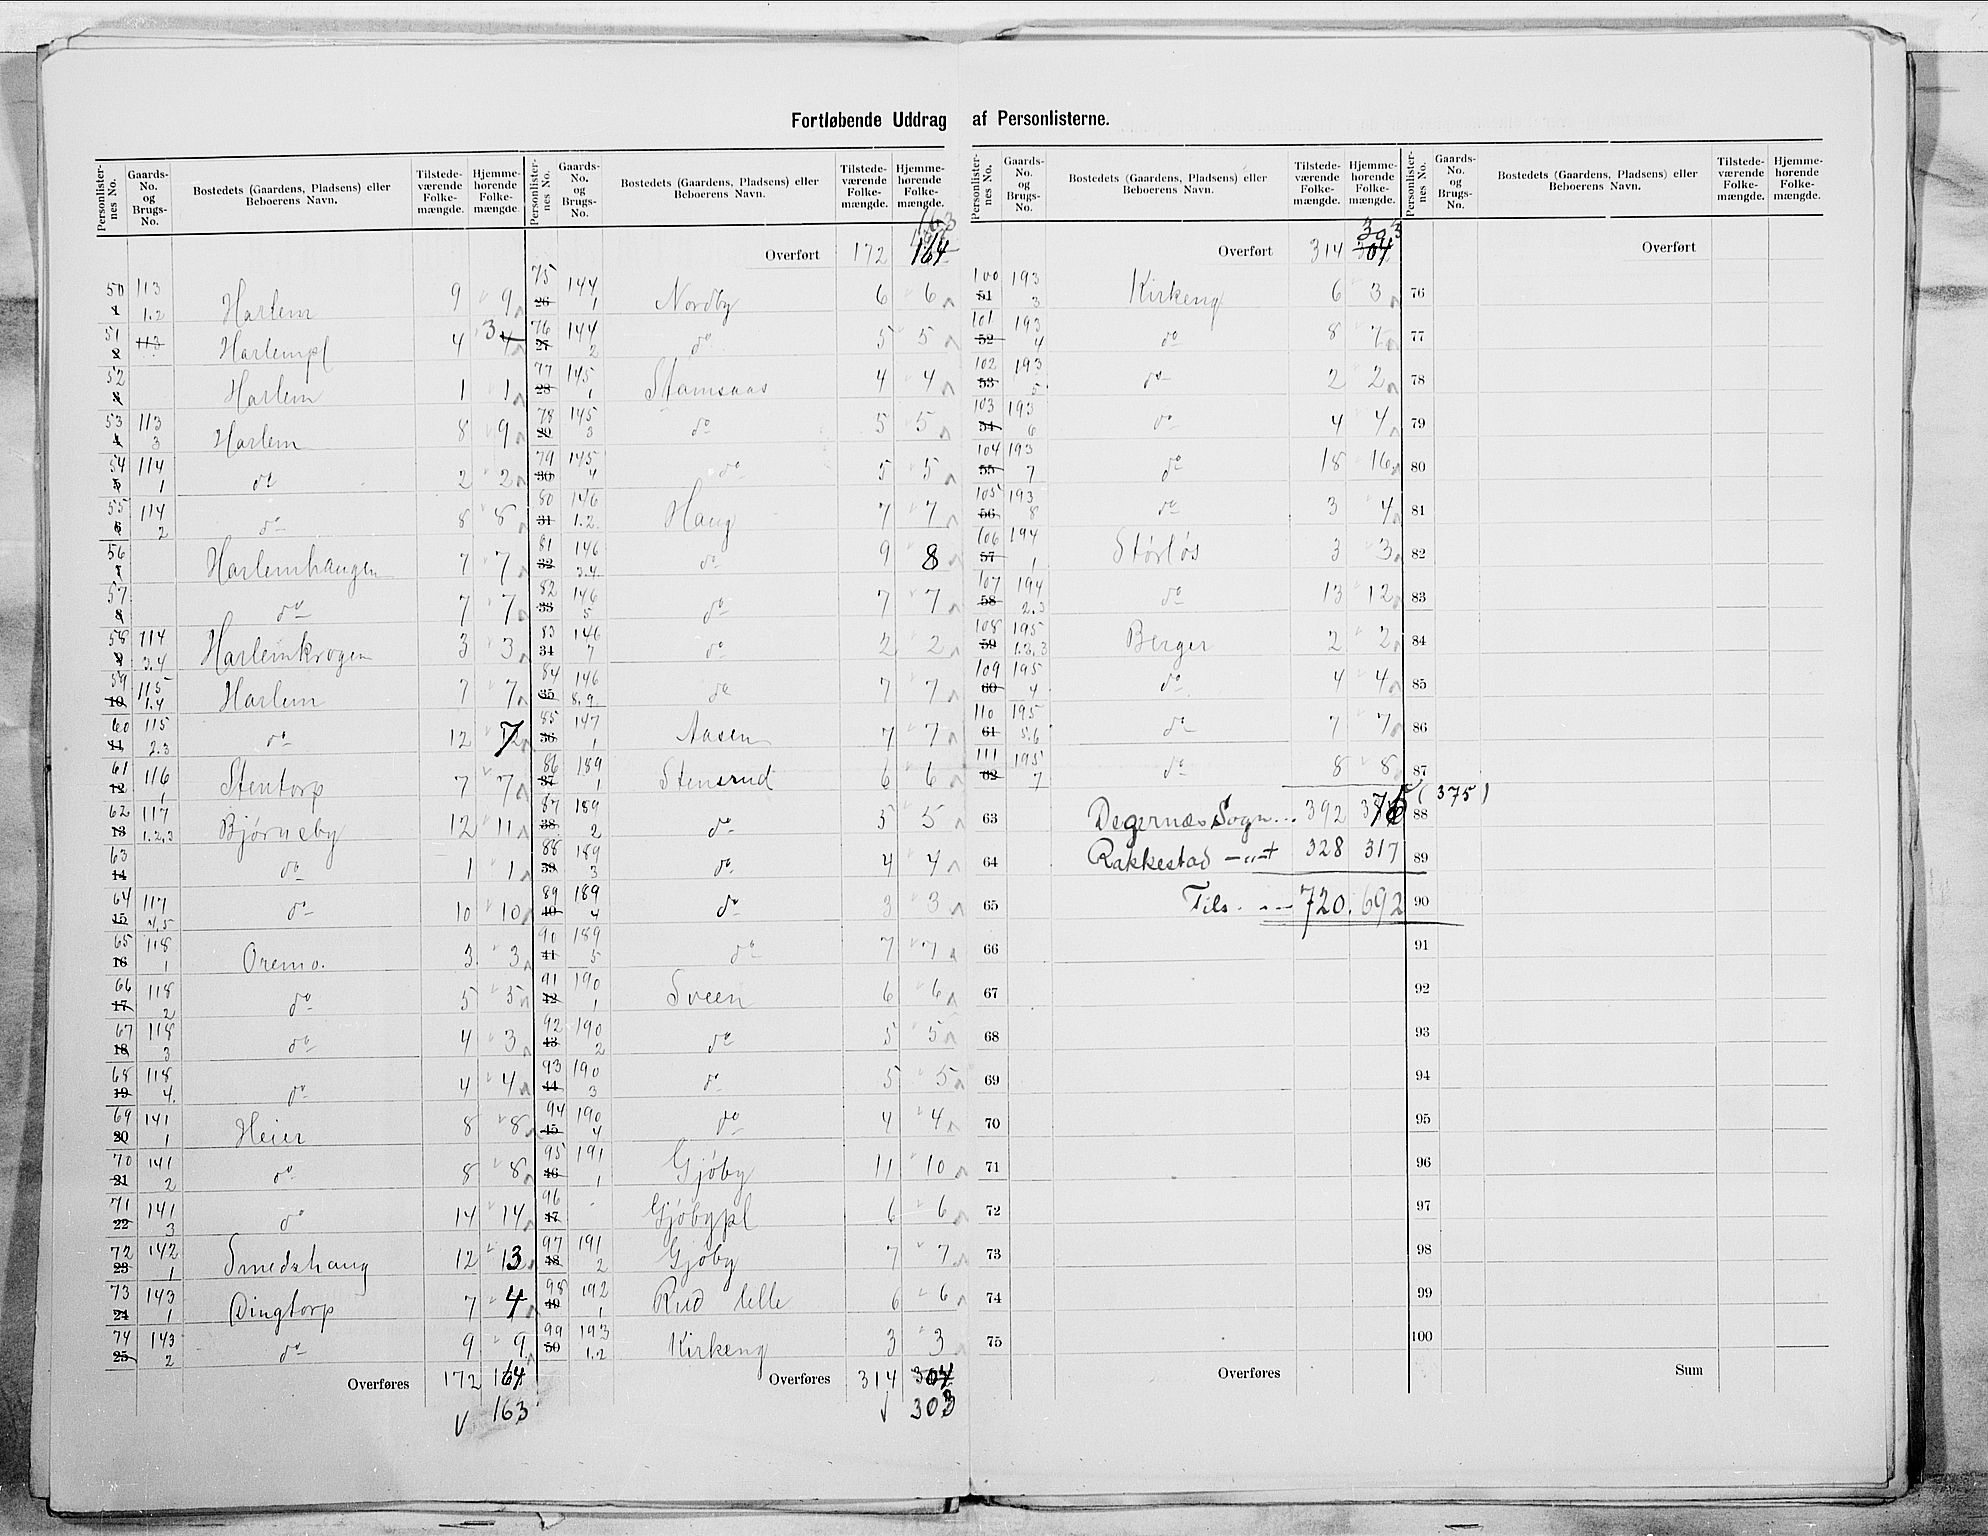 Fortløbende Uddrag af Personlisterne.
Personlister-nes No. Gaards-No. og Brugs-No. Bostedets (Gaardens, Pladsens) eller Beboerens Navn. Tilstede-værende Folke-mængde. Hjemme-hørende Folke-mængde.
50 1 113 1.2 Harlem 9 9
51 2 113 Harlempl 4 3 4
52 3 Harlem 1 1
53 4 113 3 Harlem 8 9
54 5 114 1 do 2 2
55 6 114 2 do 8 8
56 7 Harlemhaugen 7 7
57 8 do 7 7
58 9 114 3.4 Harlemkrogen 3 3
59 10 115 1.4 Harlem 7 7
60 11 115 2.3 do 12 7
61 12 116 1 Stentorp 7 7
62 13 117 1.2,3 Bjørneby 12 11
63 14 do 1 1
64 15 117 4,5 do 10 10
65 16 118 1 Oremo. 3 3
66 17 118 2 do 5 5
67 18 118 3 do 4 3
68 19 118 4. do 4 4
69 20 141 1 Heier 8 8
70 21 141 2 do 8 8
71 22 141 3 do 14 14
72 23 142 1 Smedshaug 12 13
73 24 143 1 Dingtorp 7 4
74 25 143 2 do 9 9
Overføres 172 164
163
Personlister-nes No. Gaards-No. og Brugs-No. Bostedets (Gaardens, Pladsens) eller Beboerens Navn. Tilstede-værende Folke-mængde. Hjemme-hørende Folke-mængde.
163
Overført 172 164
75 26 144 1 Nordby 6 6
76 27 144 2 do 5 5
77 28 145 1 Stamsaas 4 4
78 29 145 3 do 5 5
79 30 145 4 do 5 5
80 31 146 1.2. Haug 7 7
81 32 146 3.4. do 9 8
82 33 146 5 do 7 7
83 34 146 7 do 2 2
84 35 146 8,9 do 7 7
85 36 147 1 Aasen 7 7
86 37 189 1 Stensrud 6 6
87 38 189 2 do 5 5
88 39 189 3 do. 4 4
89 40 189 4 do 3 3
90 41 189 5 do 7 7
91 42 190 1 Sveen 6 6
92 43 190 2 do 5 5
93 44 190 3 do 5 5
94 45 190 4 do 4 4
95 46 191 1 Gjöby 11 10
96 47 Gjöbypl 6 6
97 48 191 2 Gjöby 7 7
98 49 192 1 Rud lille 6 6
99 50 193 1.2 Kirkeng 3 3
Overføres 314 304
303
Personlister-nes No. Gaards-No. og Brugs-No. Bostedets (Gaardens, Pladsens) eller Beboerens Navn. Tilstede-værende Folke-mængde. Hjemme-hørende Folke-mængde.
303
Overført 314 304
100 51 193 3 Kirkeng 6 3
101 52 193 4 do 8 7
102 53 193 5 do 2 2
103 54 193 6 do 4 4
104 55 193 7 do 18 16
105 56 193 8 do 3 4
106 57 194 1 Störlös 3 3
107 58 194 2.3 do 13 12
108 59 195 1.2,3 Berger 2 2
109 60 195 4 do 4 4
110 61 195 5.6 do 7 7
111 62 195 7 do 8 8
63 Degernæs Sogn... 392 375 (375)
64 Rakkestad -"- 328 317
65 Tils. 720. 692
66
67
68
69
70
71
72
73
74
75
Overføres
Personlister-nes No. Gaards-No. og Brugs-No. Bostedets (Gaardens, Pladsens) eller Beboerens Navn. Tilstede-værende Folke-mængde. Hjemme-hørende Folke-mængde.
Overført
76
77
78
79
80
81
82
83
84
85
86
87
88
89
90
91
92
93
94
95
96
97
98
99
100
Sum